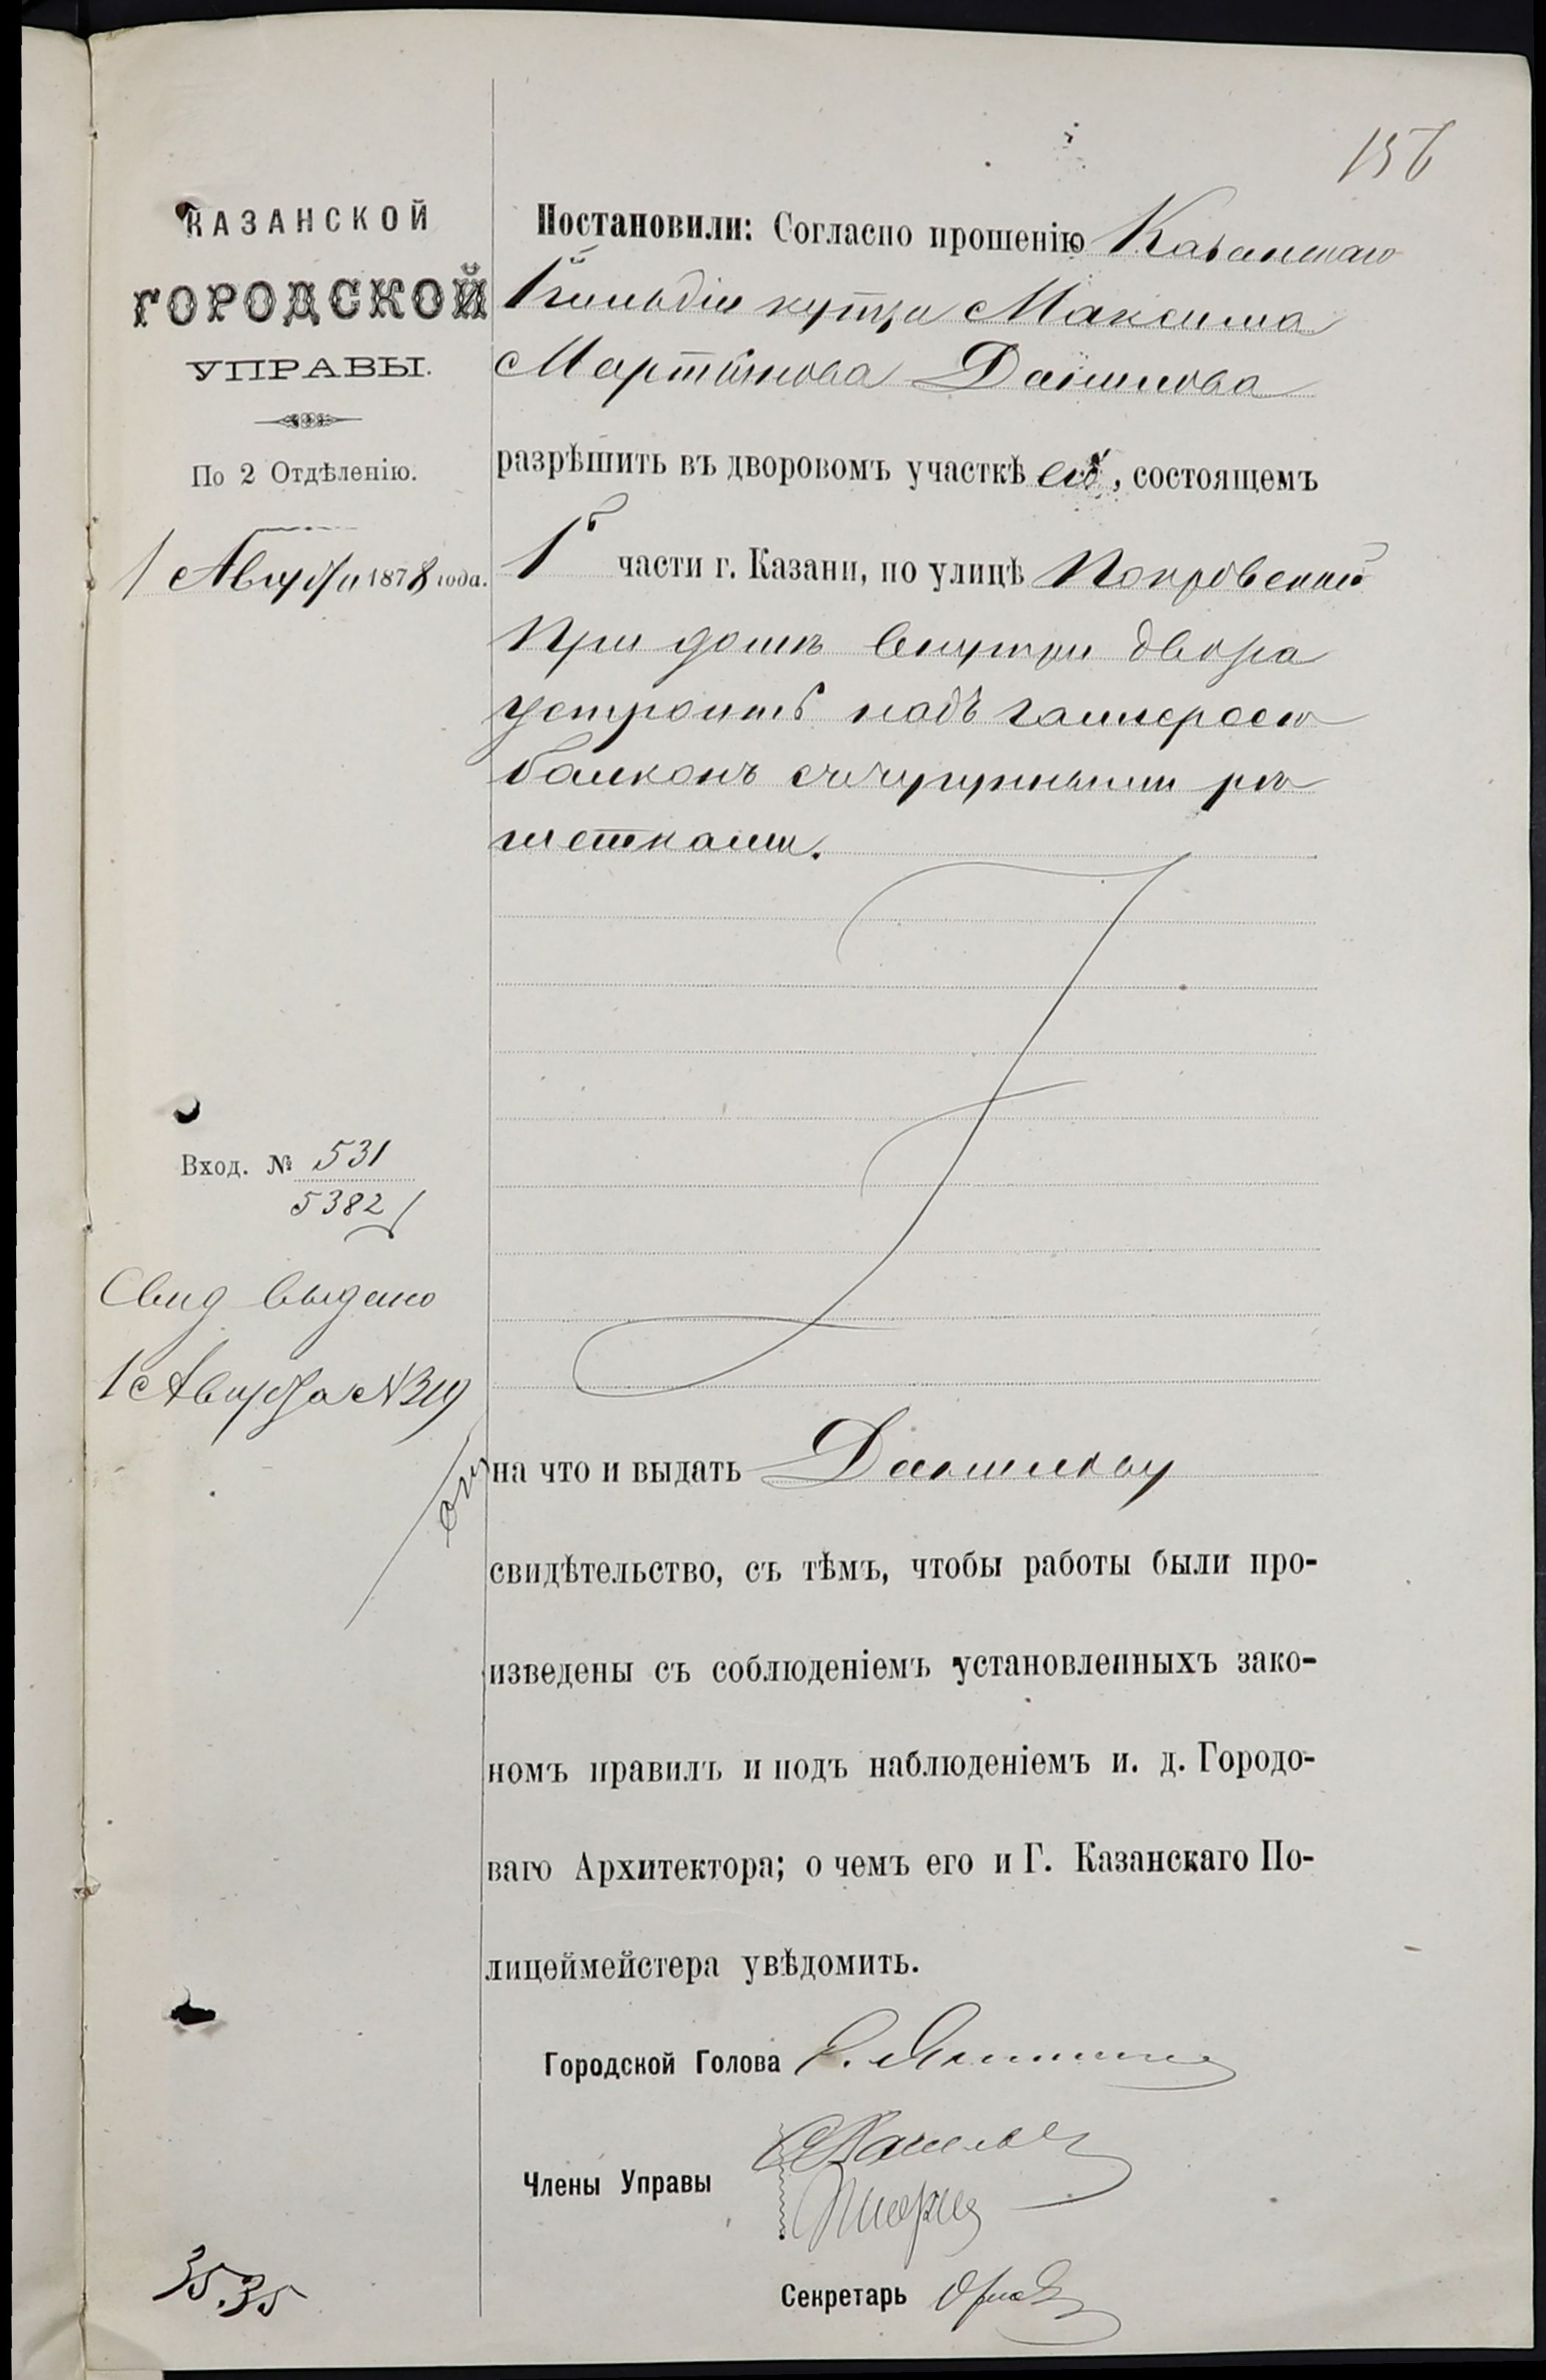 156
КАЗАНСКОЙ
ГОРОДСКОЙ
УПРАВЫ.
По 2 Отдѣленію.
1 Августа 1878 года.
Постановили: Согласно прошенію Казанскаго
1й гильдіи купца Максима
Мартынова
разрѣшить въ дворовомъ участкѣ его, состоящемъ
1й части г. Казани, по улицѣ Покровской
при домѣ внутри двора
устроить надъ галлереею
балконъ съ чугунными рѣ
шетками.
Вход. № 531
5382
Свид выдано
1 Августа № 319
на что и выдать
свидѣтельство, съ тѣмъ, чтобы работы были про-
изведены съ соблюденіемъ установленныхъ зако-
номъ правилъ и подъ наблюденіемъ и. д. Городо-
ваго Архитектора; о чемъ его и Г. Казанскаго По-
лицеймейстера увѣдомить.
Городской Голова
Члены Управы
Секретарь
35.35